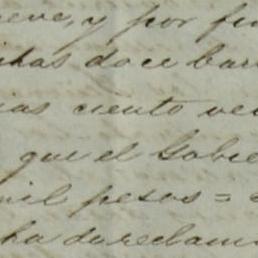 ueve, y por fin
chas doce barr
ias ciento vei
que el Gobie
mil pesos =
ha de reclam